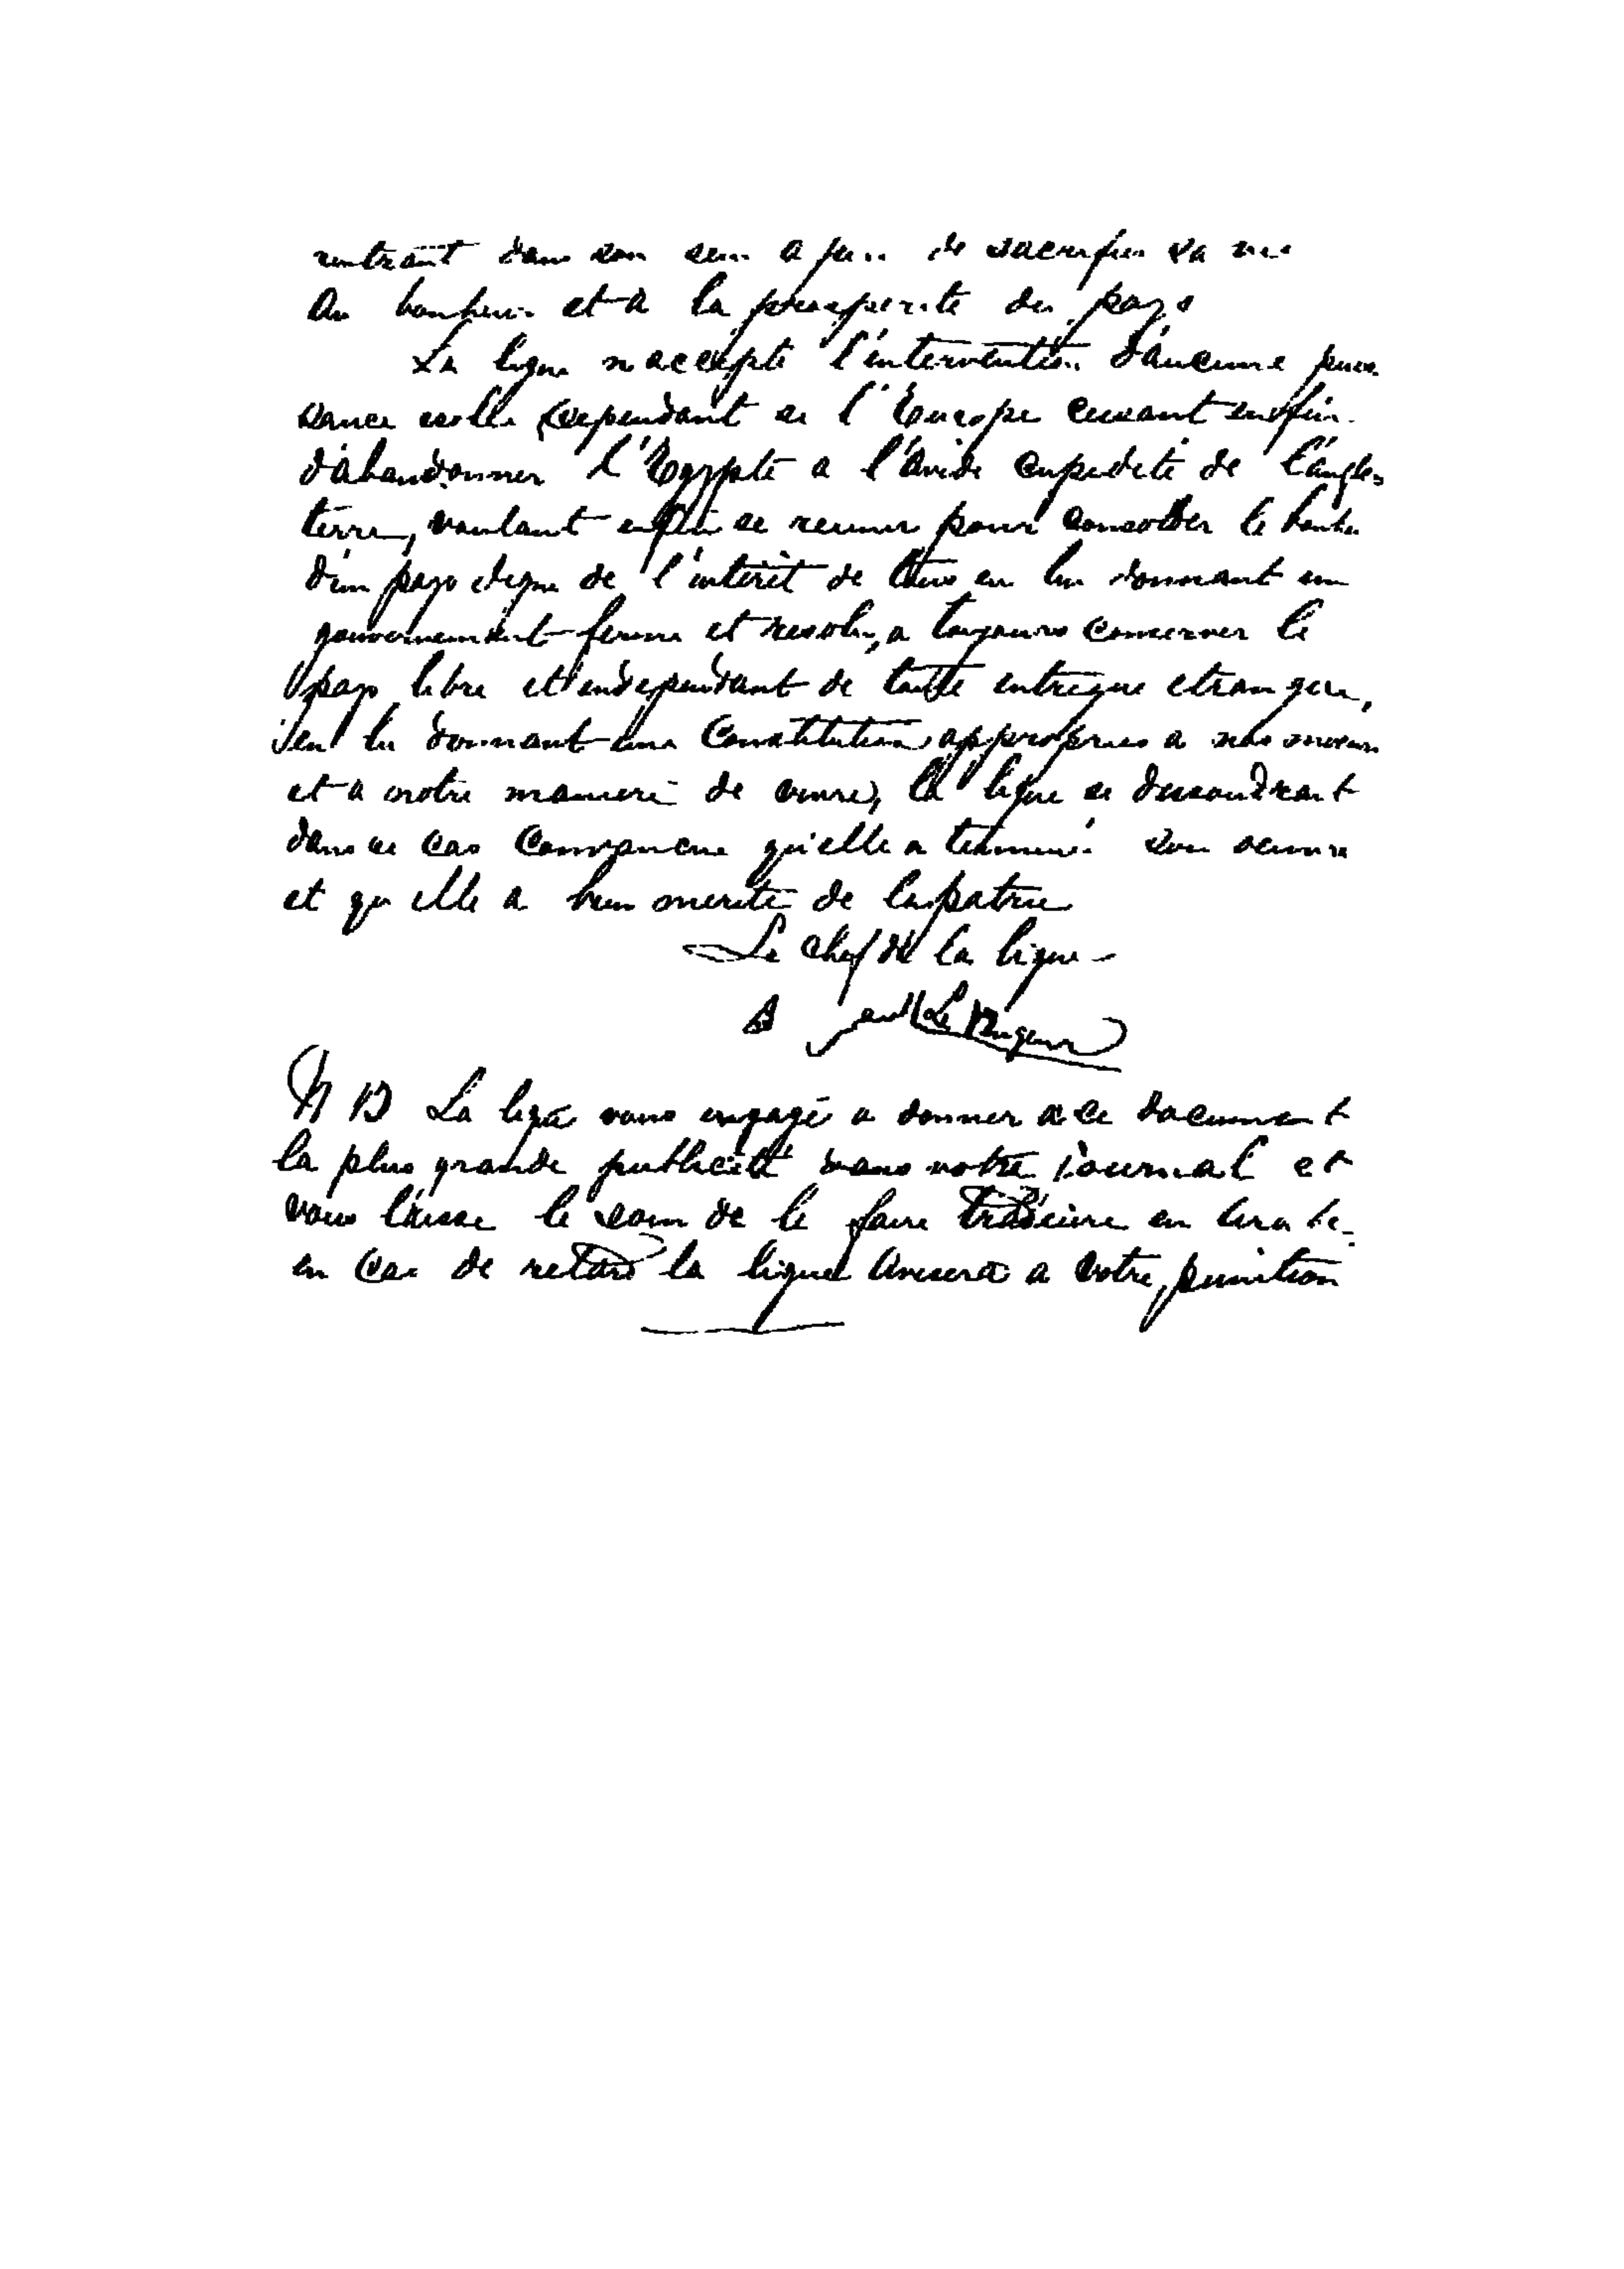 rentrant dans son sein a juré de sacrifier sa vie
au bonheur et à la prosperité du pays
La ligue n'accepte l'intervention d'aucune puis
sance isolée cependant si l'Europe cessant enfin
d'abandonner l'Egypte a l'avide cupidité de l'angle-
terre, voulant enfin se reunir pour consolider le bonheur
d'un pays digne de l'interêt de tous en lui donnant un
gouvernement ferme et resolu, a toujours conserver le
pays libre et independant de toute intrigue etrangere,
en lui donnant une Constitution appropriée a nos moeurs
et a notre maniere de vivre, la ligue se dissoudrait
dans ce cas convaincue qu'elle a terminé son oeuvre
et qu'elle a bien merité de la patrie
Le chef de la ligue
N B La ligue vous engage a donner a ce document
la plus grande publicité dans votre journal et
vous laisse le soin de le faire traduire en arabe
en cas de retard la ligue avisera a votre punition